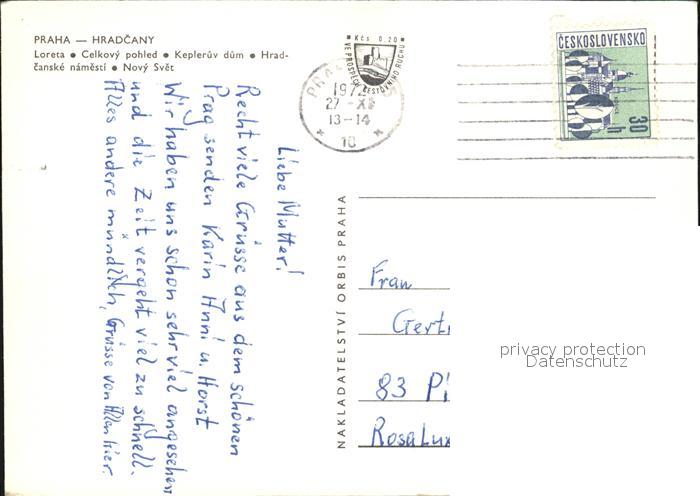 PRAHA — HRADČANY
Loreta ● Celkový pohled ● Keplerův dům ● Hrad-
čanské náměstí ● Nový Svět
Kčs 0,20
VE PROSPĚCH CESTOVNÍHO RUCHU
1972
27 -XI
13-14
10
ČESKOSLOVENSKO
30
h
Liebe Mutter!
Recht viele Grüsse aus dem schönen
Prag senden Karin Anni u. Horst
Wir haben uns schon sehr viel angesehen
und die Zeit vergeht viel zu schnell.
Alles andere mündlich, Grüsse von Allen hier.
NAKLADATELSTVÍ ORBIS PRAHA
Frau
Gert
83 Pi
Rosa Lux
privacy protection
Datenschutz